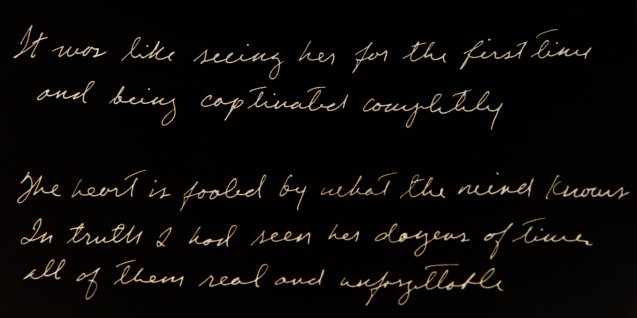 It was like seeing her for the first time
and being captivated completely
The heart is fooled by what the mind knows
In truth I had seen her dozens of times
all of them real and unforgettable